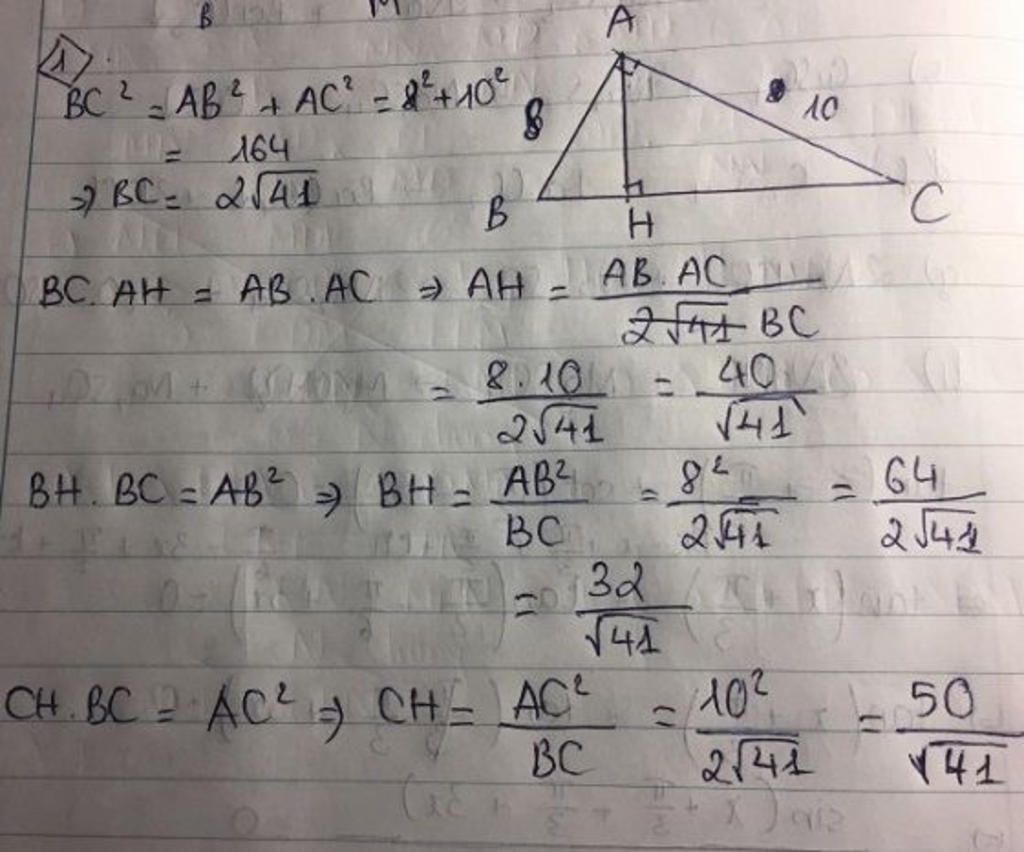 B M
1
A
BC² = AB² + AC² = 8² + 10²
8 10
= 164
⇒ BC = 2√41
B H C
BC.AH = AB.AC ⇒ AH = AB.AC / 2√41 BC
= 8.10 / 2√41 = 40 / √41
BH.BC = AB² ⇒ BH = AB² / BC = 8² / 2√41 = 64 / 2√41
= 32 / √41
CH.BC = AC² ⇒ CH = AC² / BC = 10² / 2√41 = 50 / √41